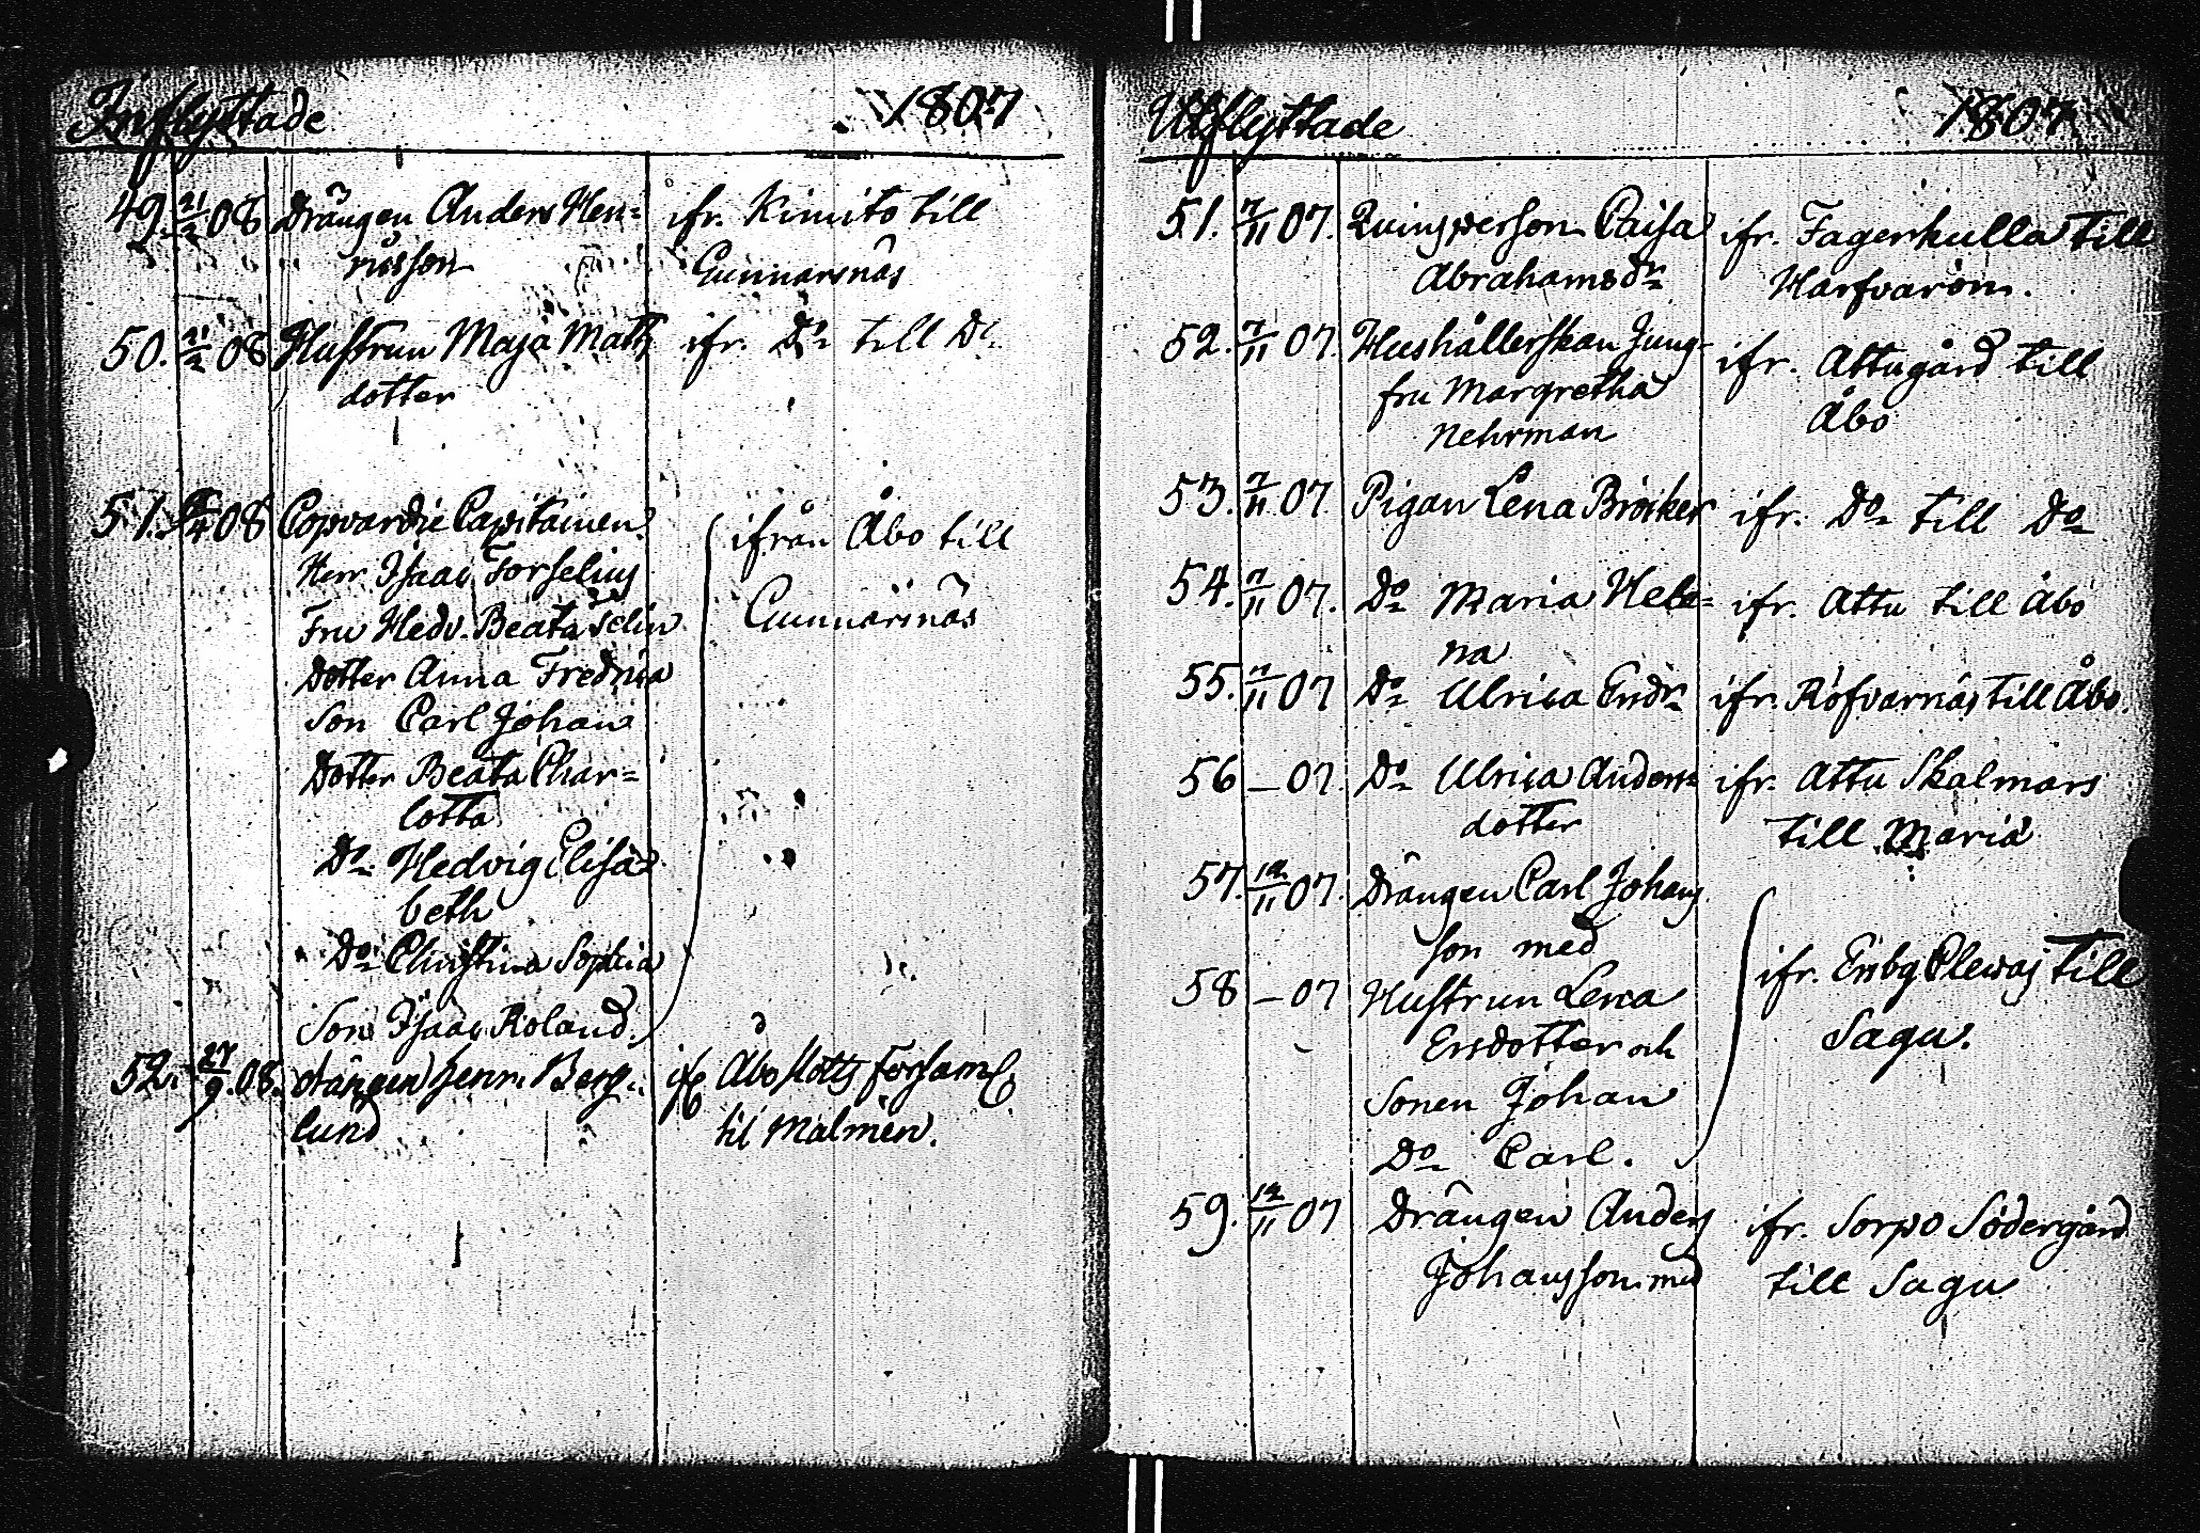 Inflyttade 1807
49. 21/2 08 Drängen Anders Hen= ifr. Kimito till
ricsson Gunnarsnäs
50. 21/2 08 Hustrun Maja Matts ifr. Do till Do
dotter
51. 08 Copvardie Capitainen ifrån Åbo till
Herr Isaac Forselius
Fru Hedv. Beata Selin Gunnarsnäs
Dotter Anna Fredrica
Son Carl Johan
Dotter Beata Char=
lotta
Do Hedvig Elisa=
beth
Do Christina Sophia
Son Isaac Roland.
52. 27/9. 08. drängen henr. Berg= ifr Åbo församl
lund til Malmen.
Utflyttade 1807
51. 7/11 07. Qvinsperson Caisa ifr. Fagerkulla till
Abrahamsdr Harfvaröm.
52. 7/11 07. Hushållerskan Jung= ifr. Attugård till
fru Margretha Åbo
Nehrman
53. 7/11 07 Pigan Lena Bröiker ifr. Do till Do
54. 7/11 07. Do Maria Hele= ifr. Attu till Åbo
na
55. 7/11 07 Do Ulrica Ersdr ifr. Röfvarnäs till Åbo.
56 – 07. Do Ulrica Anders= ifr. Attu Skalmars
dotter till Maria
57. 12/11 07. Drängen Carl Johans
son med ifr. Ersby Klevas till
58 – 07 Hustrun Lena
Ersdotter och Sagu.
Sonen Johan
Do Carl.
59. 12/11 07 Drängen Anders ifr. Sorpo Södergård
Johansson med till Sagu